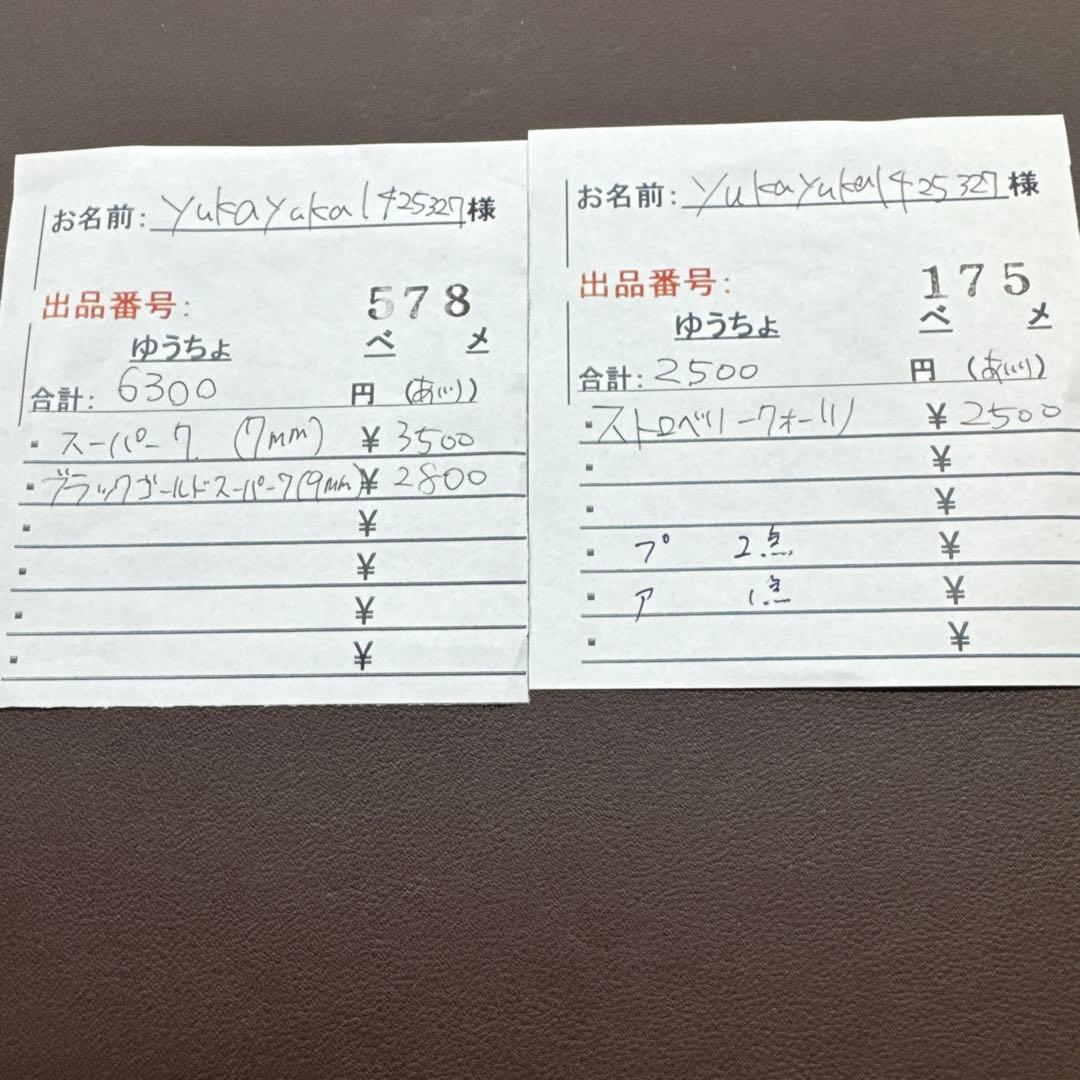 お名前: yukayukal425327様
出品番号: 578
ゆうちょ ペ メ
合計: 6300 円 (あいり)
・スーパーク (7mm) ¥ 3500
・ブラックゴールドスーパーク(9mm) ¥ 2800
・ ¥
・ ¥
・ ¥
・ ¥
お名前: yukayukal425327様
出品番号: 175
ゆうちょ ペ メ
合計: 2500 円 (あいり)
・ストロベリークォーツ ¥ 2500
・ ¥
・ ¥
・ プ 2点 ¥
・ ア 1点 ¥
・ ¥